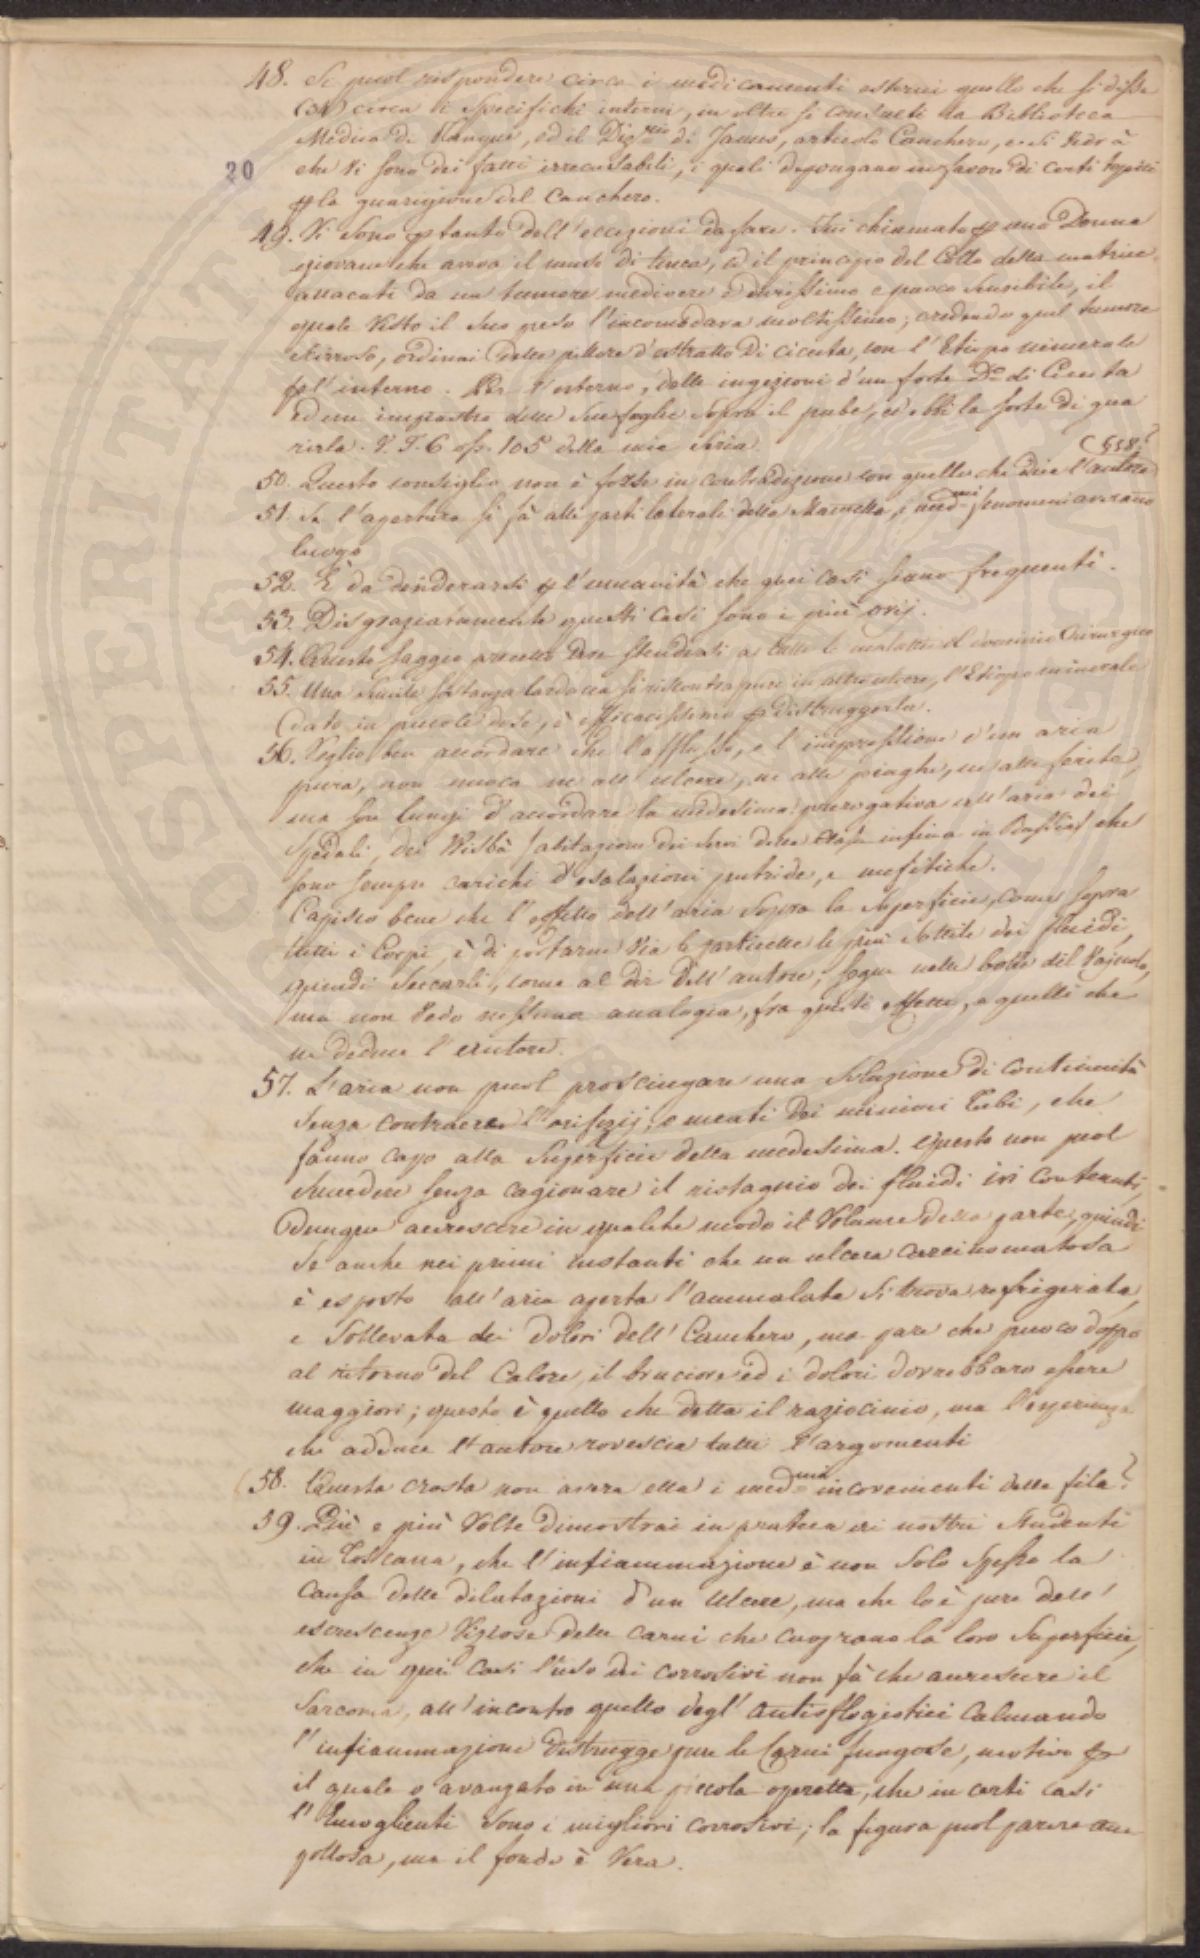 48. Si puol rispondere circa i medicamenti esterni quello che si disse
circa i Specifichi interni, in oltre si consulti la Biblioteca
Medica di Planque, ed il Dizrio di James, articolo Canchero, e si Vedrà
20
che vi sono dei fatti irrecusabili, i quali depongano in favore di certi topici
p la guarigione del Canchero.
49. Vi sono p tanto dell'eccezioni da fare. Fui chiamato p una Donna
giovane che aveva il muso di tinca, ed il principio del Collo della matrice
attacati da un tumore mediocre e durissimo e puoco sensibile, il
quale visto il suo peso l'incomodava moltissimo; credendo quel tumore
schirroso, ordinai delle pillore d'estratto di cicuta, con l'Etiope minerale
p l'interno. Per l'esterno, delle ingezioni d'un forte Dto di Cicuta
ed un impiastro delle sue foglie sopra il pube, ed ebbi la sorte di gua
rirla. V. T. 6 oss. 105 della mia
50. Questo consiglio non è forse in contradizione con quello che dice l'autore (§58?
51. Se l'apertura si fà alle parti laterali della Mamella, i medmi fenomeni averano
luogo
52. È da desiderarsi p l'umanità che quei casi siano frequenti.
53. Disgraziatamente questi Casi sono i più
54. Questo saggio precetto deve stendersi a tutte le malattie del dominio Chirurgico
55. Una simile sostanza lardacea si riscontra pure in altre ulcere, l'Etiope minerale
dato in piccole dose, è efficacissimo p distruggerla.
56. Voglio ben accordare che l'afflusso, e l'impressione d'un aria
pura, non nuoca ne all'ulcere, ne alle piaghe, ne alle ferite,
ma son lungi d'accordare la medesima prerogativa all'aria dei
Spedali, dei abitazione dei servi della infima in che
sono sempre carichi d'esalazioni putride, e mefitiche.
Capisco bene che l'effetto dell'aria sopra la superficie, come sopra
tutti i Corpi, è di portarne via le particelle le più sottile dei fluidi,
quindi seccarli, come al dir dell'autore, segue nelle bolle del Vajuolo,
ma non vedo nessuna analogia, fra questi effetti, e quelli che
ne deduce l'autore.
57. L'aria non puol proscingare una soluzione di continuità
senza contraere l'orifizij, e meati dei minimi Tubi, che
fanno capo alla superficie della medesima. Questo non puol
succedere senza cagionare il ristagnio dei fluidi ivi contenuti,
Dunque accrescere in qualche modo il Volume della parte, quindi
se anche nei primi instanti che un ulcera carcinomatosa
è esposto all'aria aperta l'ammalata si trova refrigerata,
e sollevata dei dolori dell'Canchero, ma pare che puoco doppo
al ritorno del Calore, il bruciore ed i dolori dovrebbaro essere
maggiori; questo è quello che detta il raziocinio, ma l'esperienza
che adduce l'autore rovescia tutti l'argomenti
58. Questa crosta non avera ella i medmi incovenienti della fila?
59. Più e più Volte dimostrai in prateca ai nostri Studenti
in Toscana, che l'infiammazione è non solo spesso la
Causa delle dilatazioni d'un Ulcere, ma che lo è pure dell'
escrescenze Viziose delle carni che cuoprano la loro superficie,
che in quei Casi l'uso dei corrosivi non fà che accrescere il
Sarcoma, all'incontro quello degl'antiflogistici calmando
l'infiammazione distrugge pure le Carni fungose, motivo p
il quale o avanzato in una piccola operetta, che in certi casi
l'Emoglienti sono i migliori corrosivi; la figura puol parere am
pollosa, ma il fondo è Vera.